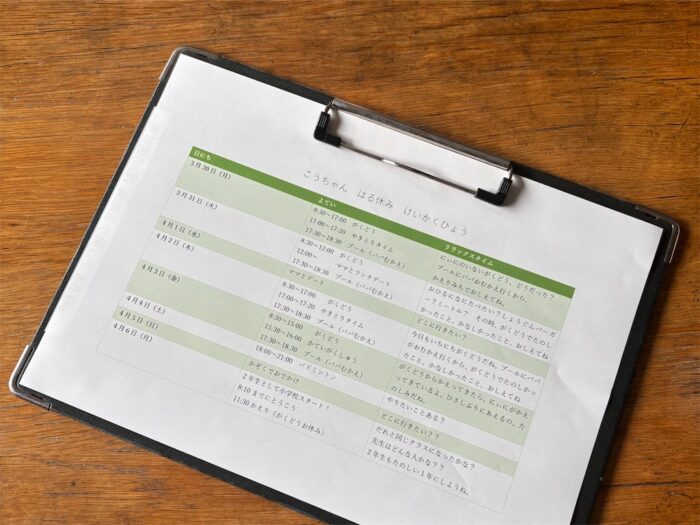 こうちゃん　はる休み　けいかくひょう
日にち　よてい　リラックスタイム
3月30日（月）
8:30～17:00　がくどう
17:00～17:20　やきとりタイム
17:30～18:30　プール（パパむかえ）
にぃにのいないがくどう、どうだった？
プールにパパおむかえ行くから、
かえりみちでおしえてね。
3月31日（火）
8:30～12:00　がくどう
12:00～　ママとランチデート
17:30～18:30　プール（パパむかえ）
おひるになにたべたい？しょうぐんバーガ
その時、がくどうでたのし
かったこと、かなしかったこと、おしえてね
4月1日（水）
ママとデート
どこに行きたい？
4月2日（木）
8:30～17:00　がくどう
17:00～17:20　やきとりタイム
17:30～18:30　プール（パパむかえ）
今日もいちにちがくどうだね。プールにパパ
がおむかえ行くから、がくどうでたのしかっ
たこと、かなしかったこと、おしえてね
4月3日（金）
8:30～15:00　がくどう
15:30～16:00　かていがくしゅう
17:30～18:30　プール（パパむかえ）
18:00～21:00　バドミントン
がくどうからかえってきたら、にぃにがかえ
ってきているよ。ひさしぶりにあえるの、た
のしみだね。
4月4日（土）
やりたいことある？
4月5日（日）
かぞくでおでかけ
どこに行きたい？？
4月6日（月）
2年生として小学校スタート！
8:10 までにとうこう
11:30 かえり（がくどうお休み）
だれと同じクラスになったかな？
先生はどんな人かな？？
2年生もたのしい1年にしようね。